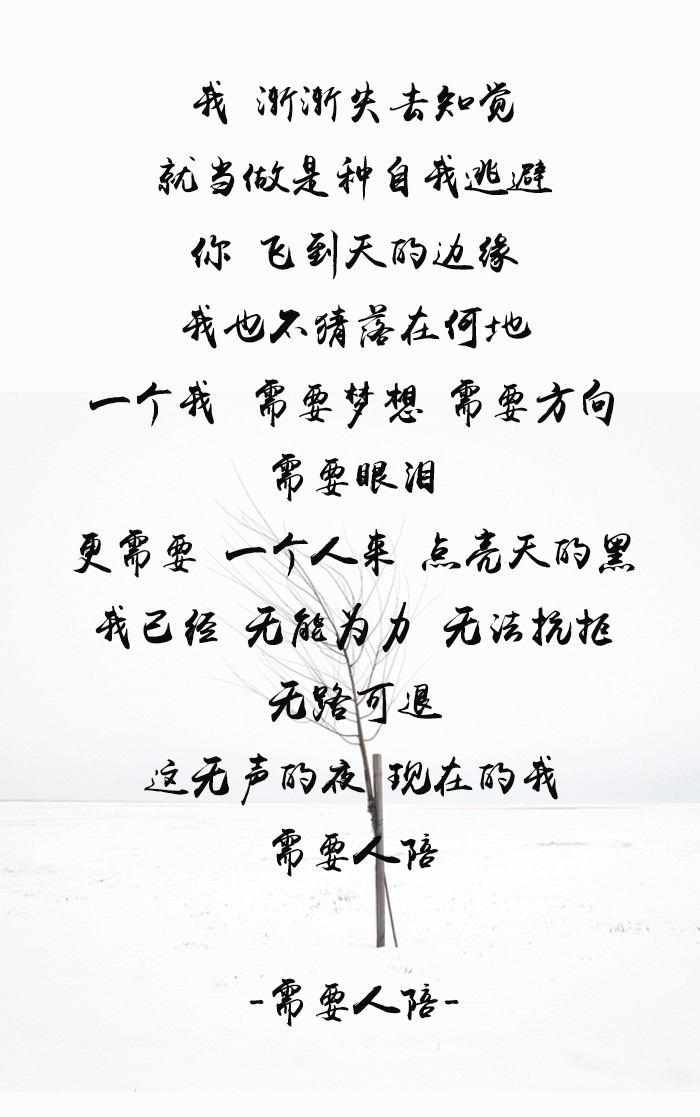 我 渐渐失去知觉
就当做是种自我逃避
你 飞到天的边缘
我也不猜落在何地
一个我 需要梦想 需要方向
需要眼泪
更需要 一个人来 点亮天的黑
我已经 无能为力 无法抗拒
无路可退
这无声的夜 现在的我
需要人陪
-需要人陪-